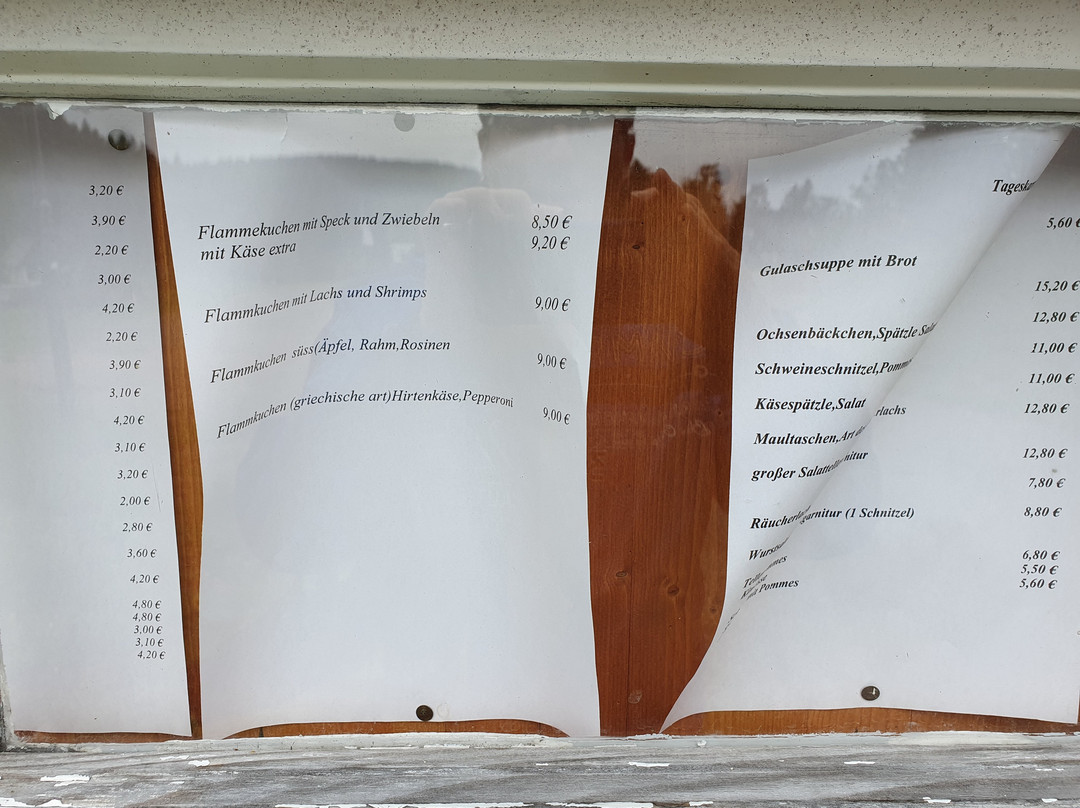 3,20 €
3,90 €
2,20 €
3,00 €
4,20 €
2,20 €
3,90 €
3,10 €
4,20 €
3,10 €
3,20 €
2,00 €
2,80 €
3,60 €
4,20 €
4,80 €
4,80 €
3,00 €
3,10 €
4,20 €
Flammekuchen mit Speck und Zwiebeln 8,50 €
mit Käse extra 9,20 €
Flammkuchen mit Lachs und Shrimps 9,00 €
Flammkuchen süss(Äpfel, Rahm,Rosinen 9,00 €
Flammkuchen (griechische art)Hirtenkäse,Pepperoni 9,00 €
5,60 €
Gulaschsuppe mit Brot
15,20 €
12,80 €
Ochsenbäckchen,Spätzle
11,00 €
Schweineschnitzel,
11,00 €
Käsespätzle,Salat
12,80 €
Maultaschen,Art
großer
12,80 €
7,80 €
garnitur (1 Schnitzel) 8,80 €
6,80 €
5,50 €
Pommes 5,60 €